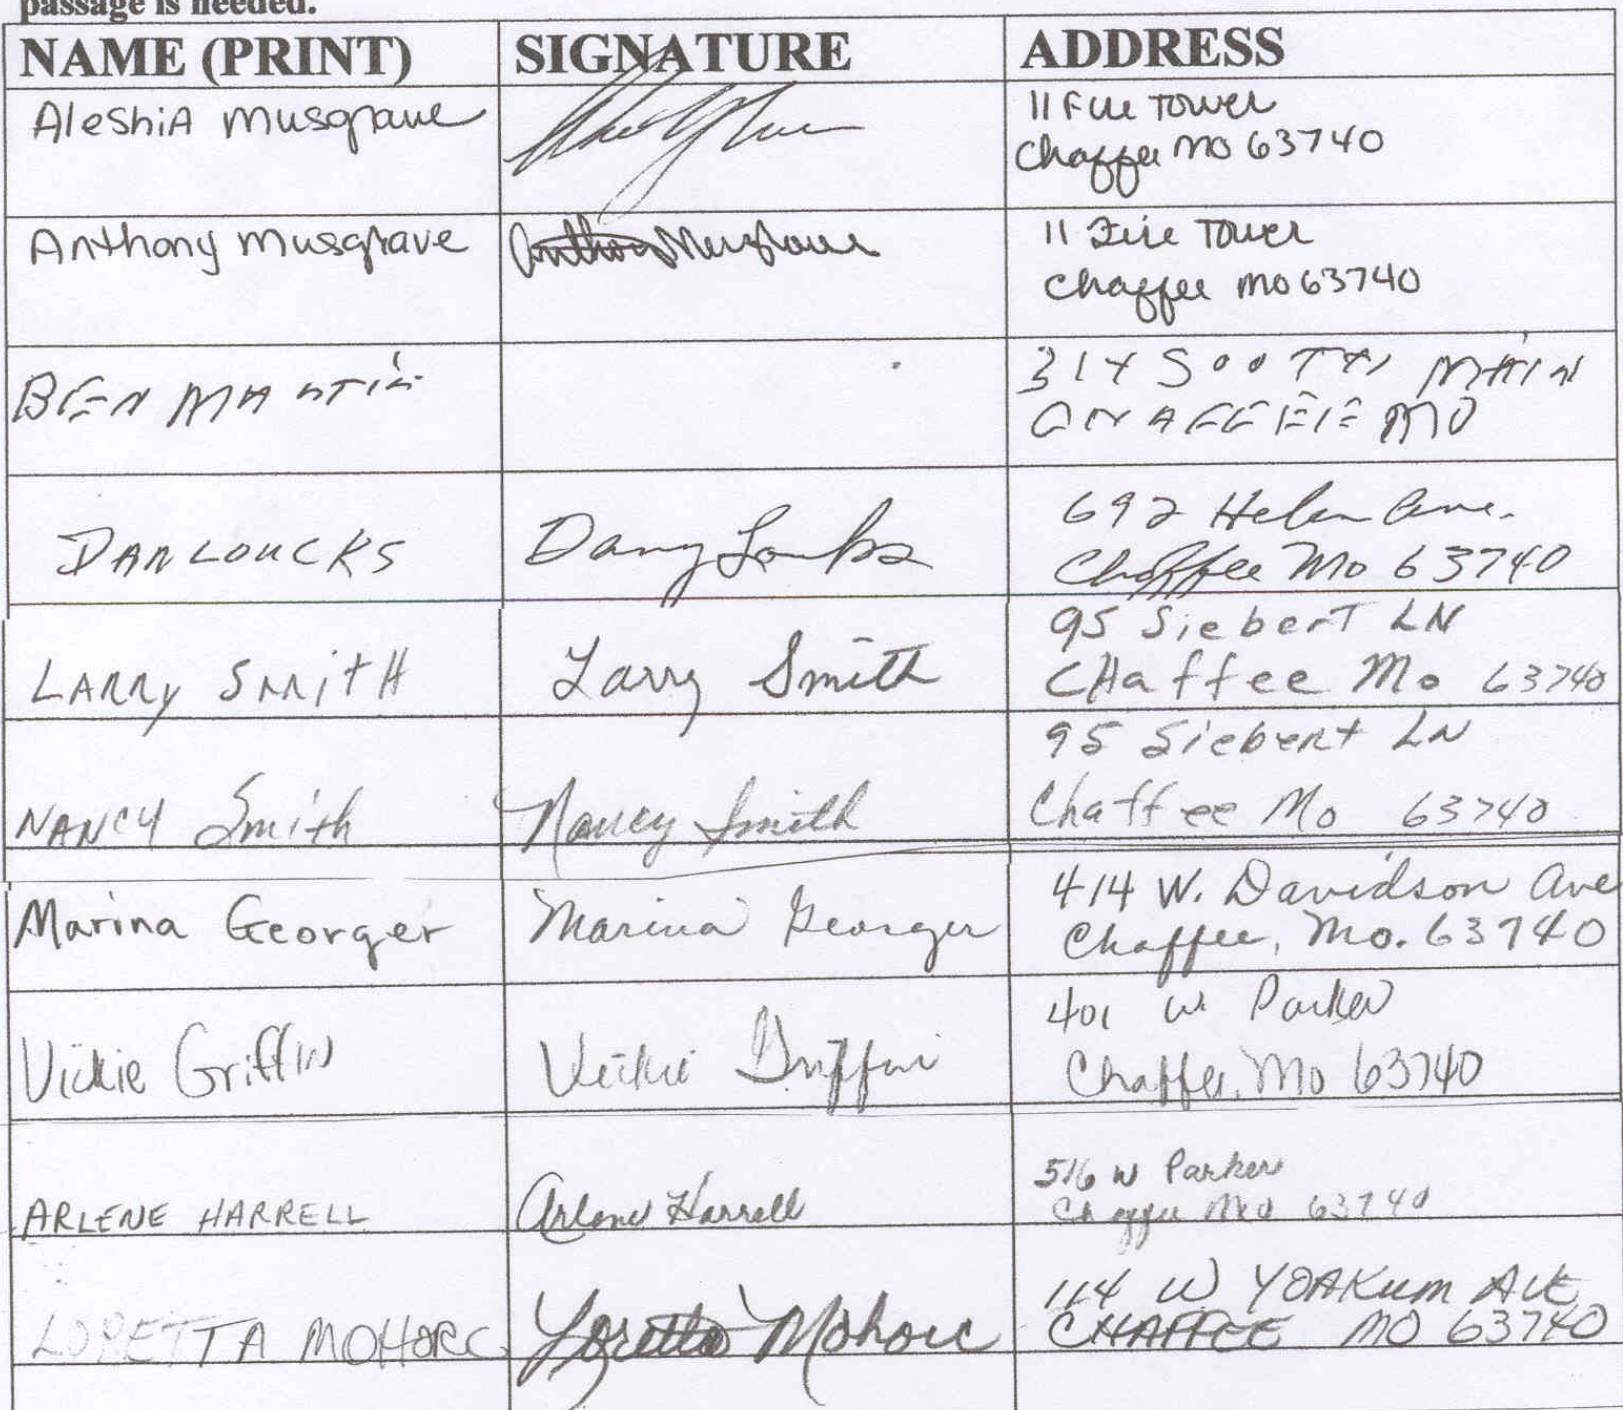 passage is needed.
NAME (PRINT) SIGNATURE ADDRESS
Aleshia Musgrave
11 Fire Tower
Chaffee Mo 63740
Anthony Musgrave Anthony Musgrave
11 Fire Tower
Chaffee Mo 63740
BEN MARTIN
314 SOUTH MAIN
CHAFFEE MO
DAN LOUCKS Danny Loucks
692 Helen Ave.
Chaffee Mo 63740
LARRY SMITH Larry Smith
95 Siebert LN
CHaffee Mo 63740
NANCY Smith Nancy Smith
95 Siebert LN
Chaffee Mo 63740
Marina Georger Marina Georger
414 W. Davidson Ave
Chaffee, Mo. 63740
Vickie Griffin Vickie Griffin
401 W Parker
Chaffee, Mo 63740
ARLENE HARRELL Arlene Harrell
516 W Parker
Chaffee Mo 63740
LORETTA MOHORC Loretta Mohorc
114 W YOAKUM AVE
CHAFFEE MO 63740